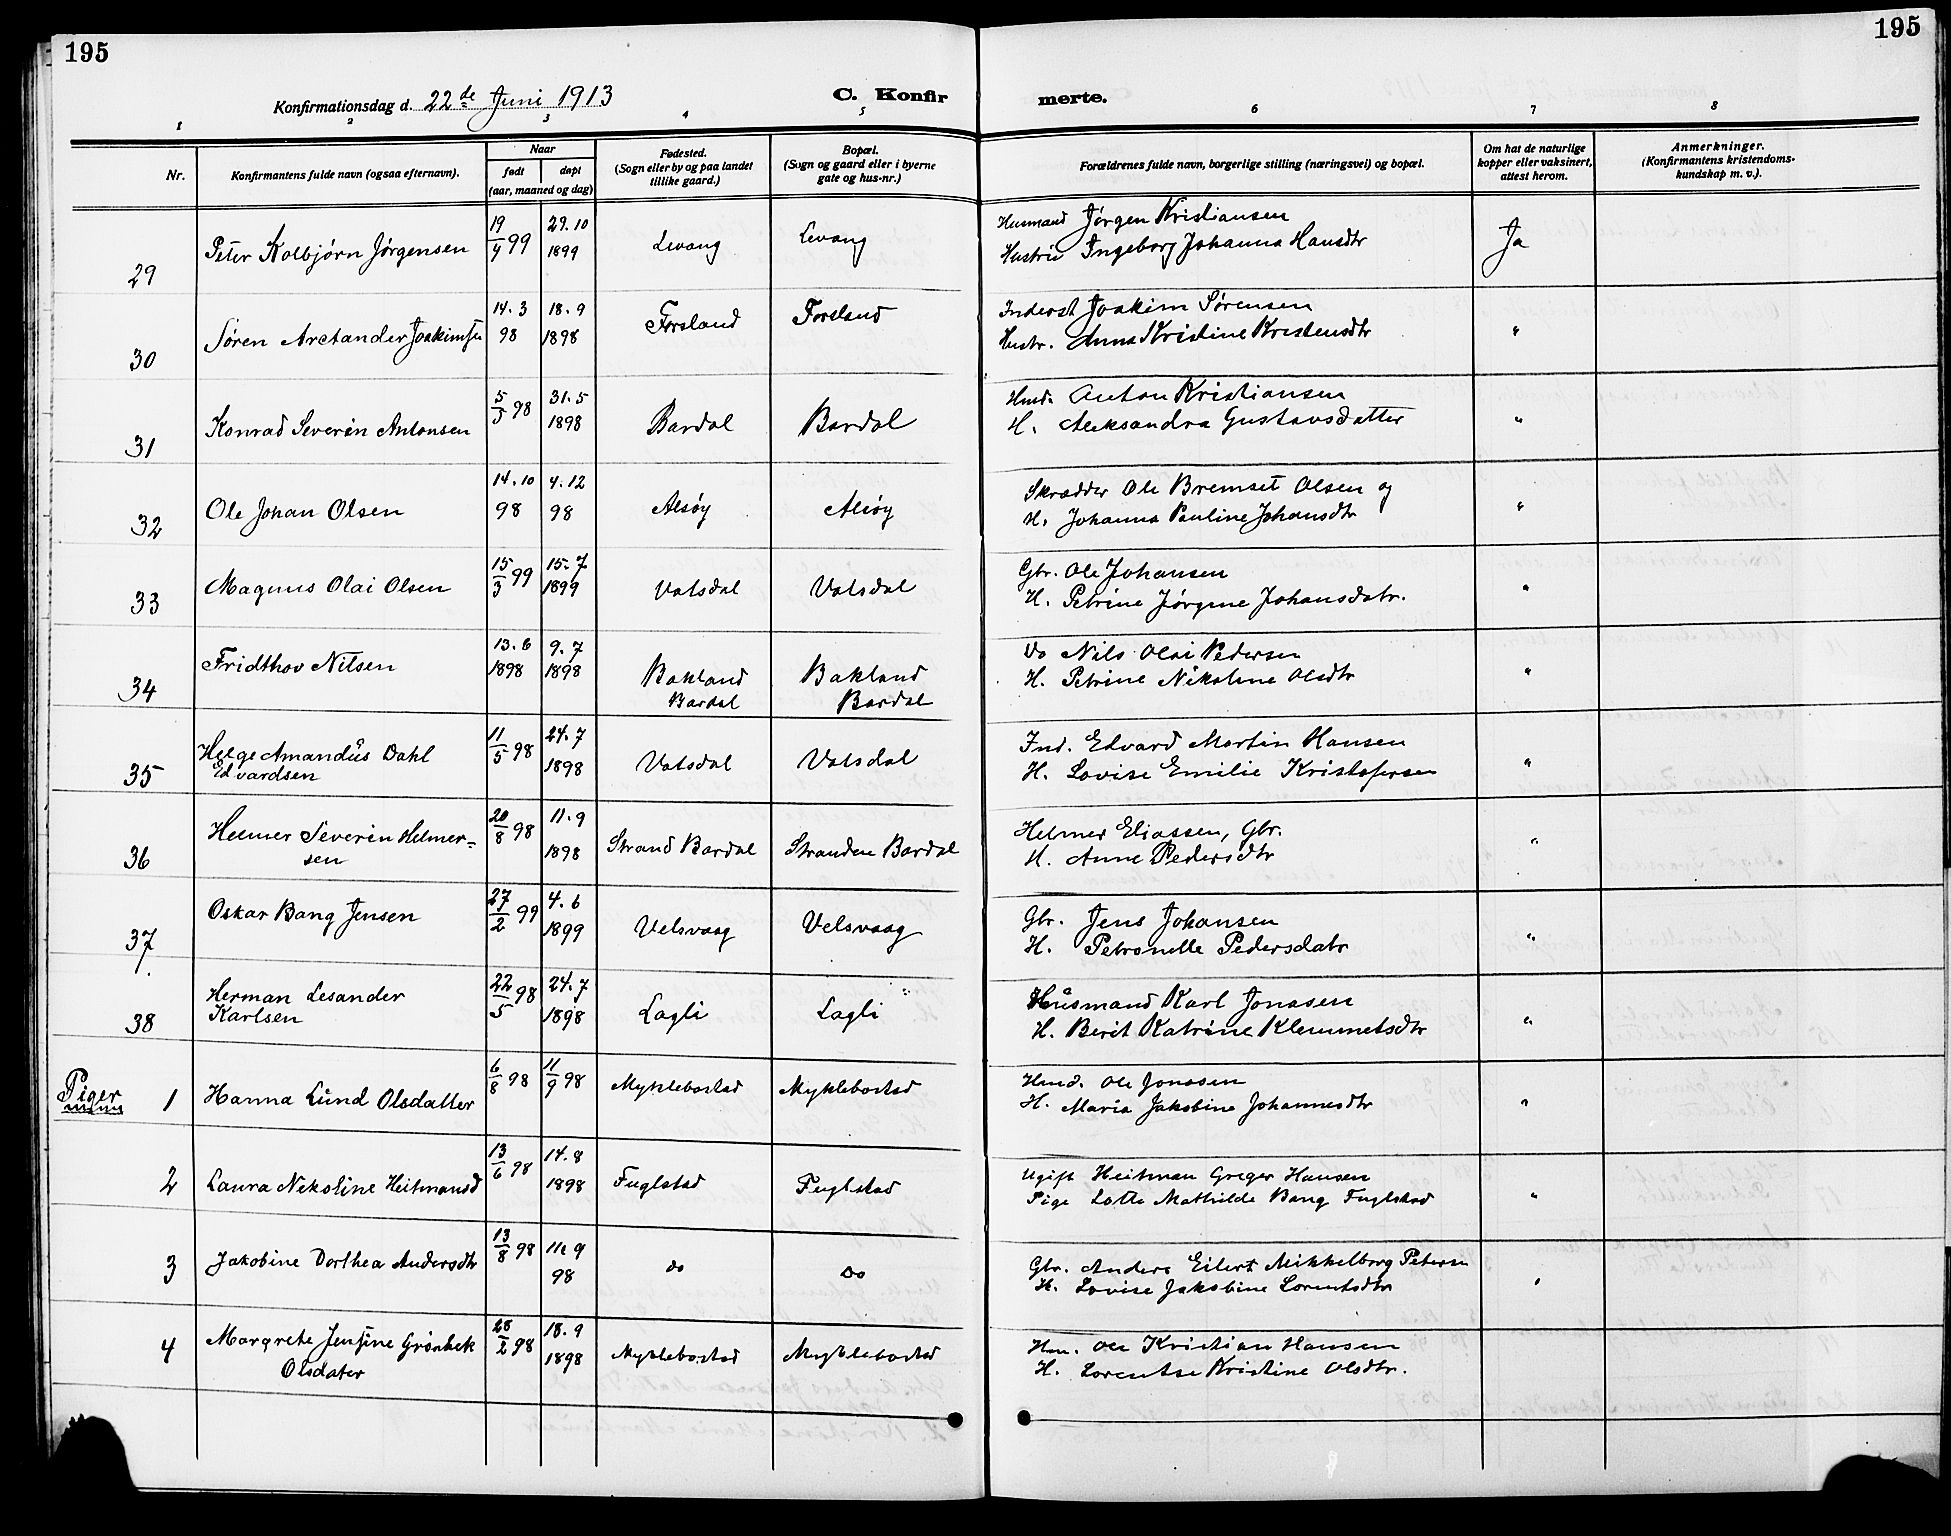 195
195
Konfirmationsdag d. 22de Juni 1913
C. Konfir
merte.
1 2 3 4 5 6 7 8
Nr.
Konfirmantens fulde navn (ogsaa efternavn).
Naar
født
døpt
(aar, maaned og dag)
Fødested.
(Sogn eller by og paa landet
tillike gaard.)
Bopæl.
(Sogn og gaard eller i byerne
gate og hus-nr.)
Forældrenes fulde navn, borgerlige stilling (næringsvei) og bopæl.
Om hat de naturlige
kopper eller vaksinert,
attest herom.
Anmerkninger.
(Konfirmantens kristendoms-
kundskap m. v.).
29 Peter Kolbjørn Jørgensen 19/4 99 29.10 1899 Levang Levang
Husmand Jørgen Kristiansen
Hustru Ingeborg Johanna Hansdtr Ja
30 Søren Arctander Joakimsen 14.3 98 18.9 1898 Forsland Forsland
Inderst Joakim Sørensen
Hustr. Anna Kristine Kristensdtr "
31 Konrad Severin Antonsen 5/3 98 31.5 1898 Bardal Bardal
Hmd. Anton Kristiansen
H. Aleksandra Gustavsdatter "
32 Ole Johan Olsen 14.10 98 4.12 98 Alsøy Alsøy
Skrædder Ole Bremset Olsen og
H. Johanna Pauline Johansdtr "
33 Magnus Olai Olsen 15/3 99 15.7 1899 Vatsdal Vatsdal
Gbr. Ole Johansen
H. Petrine Jørgine Johansdatr. "
34 Fridthov Nilsen 13.6 1898 9.7 1898 Bakland Bardal Bakland Bardal
Do Nils Olai Pedersen
H. Petrine Nikoline Olsdtr "
35 Helge Amandus Dahl
Edvardsen 11/5 98 24.7 1898 Vatsdal Vatsdal
Ind. Edvard Martin Hansen
H. Lovise Emilie Kristofersen "
36 Helmer Severin Helmer-
sen 20/8 98 11.9 1898 Strand Bardal Stranden Bardal
Helmer Eliassen, Gbr.
H. Anne Pedersdtr "
37 Oskar Bang Jensen 27/2 99 4.6 1899 Velsvaag Velsvaag
Gbr. Jens Johansen
H. Petronelle Pedersdatr "
38 Herman Lesander
Karlsen 22/5 98 24.7 1898 Lagli Lagli
Husmand Karl Jonasen
H. Berit Katrine Klemmetsdtr "
Piger
1 Hanna Lund Olsdatter 6/8 98 11/9 98 Myklebostad Myklebostad
Hmd. Ole Jonasen
H. Maria Jakobine Johannesdtr "
2 Laura Nikoline Heitmansd 13/6 98 14.8 1898 Fuglstad Fuglstad
Ugift Heitman Greger Hansen
Pige Lotte Mathilde Bang Fuglstad "
3 Jakobine Dorthea Andersdtr 13/8 98 11.9 98 do do
Gbr. Anders Eilert Mikkelborg Petersen
H. Lovise Jakobine Lorentsdtr "
4 Margrete Jensine Grønbek
Olsdater 28/2 98 18.9 1898 Myklebostad Myklebostad
Hm. Ole Kristian Hansen
H. Lorentse Kristine Olsdtr.